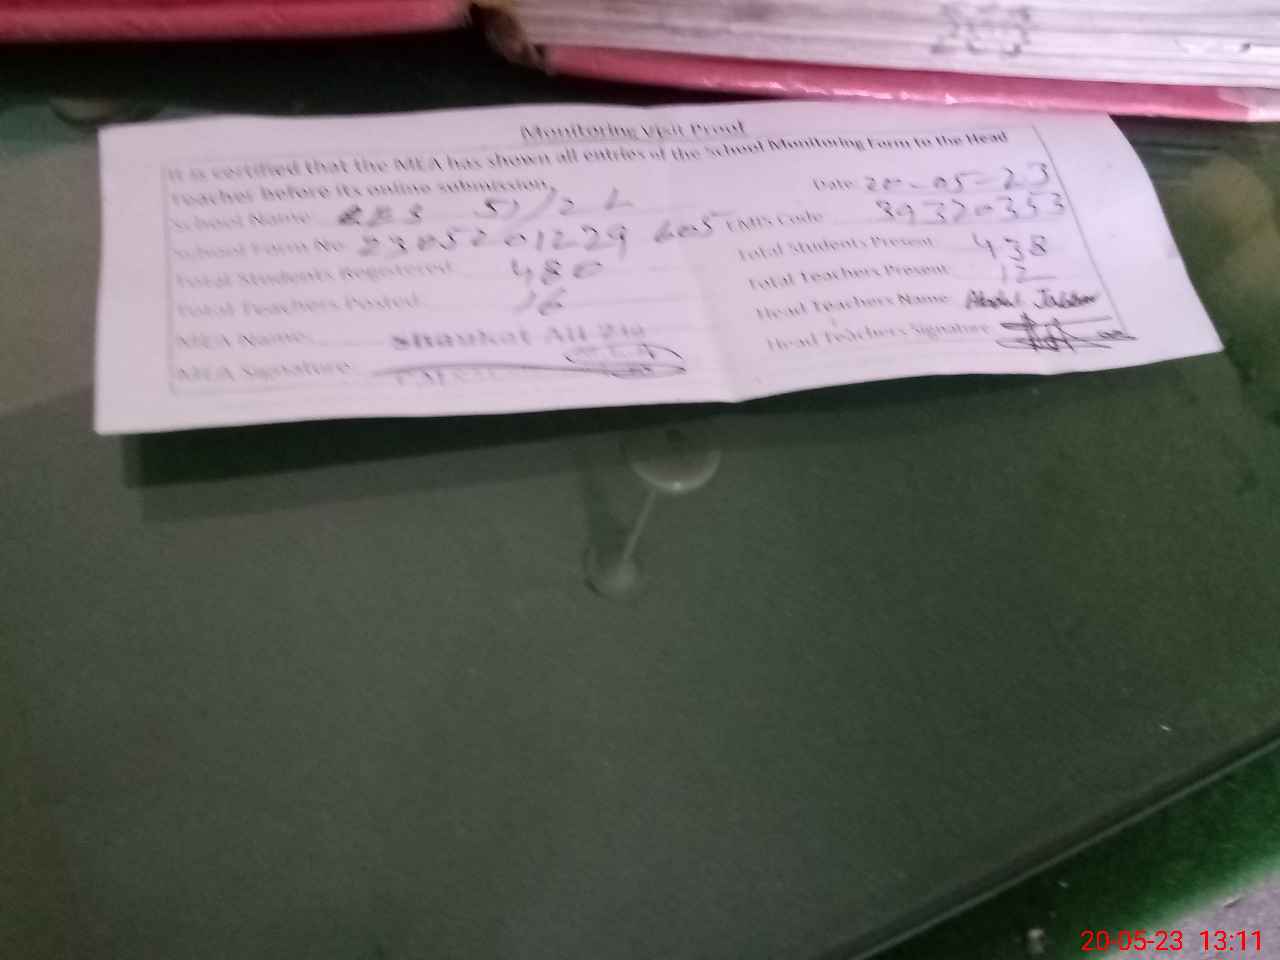 Monitoring Visit Proof
It is certified that the MEA has shown all entries of the School Monitoring Form to the Head
Teacher before its online submission.
Date: 20-05-23
School Name: 51/2 L
EMIS Code: 39320353
School Form No: 2305201229 605
Total Students Present: 438
Total Students Registered: 480
Total Teachers Present: 12
Total Teachers Posted: 16
Head Teachers Name: Abdul Jabbar
MEA Name: Shaukat Ali
Head Teachers Signature:
MEA Signature:
20-05-23 13:11